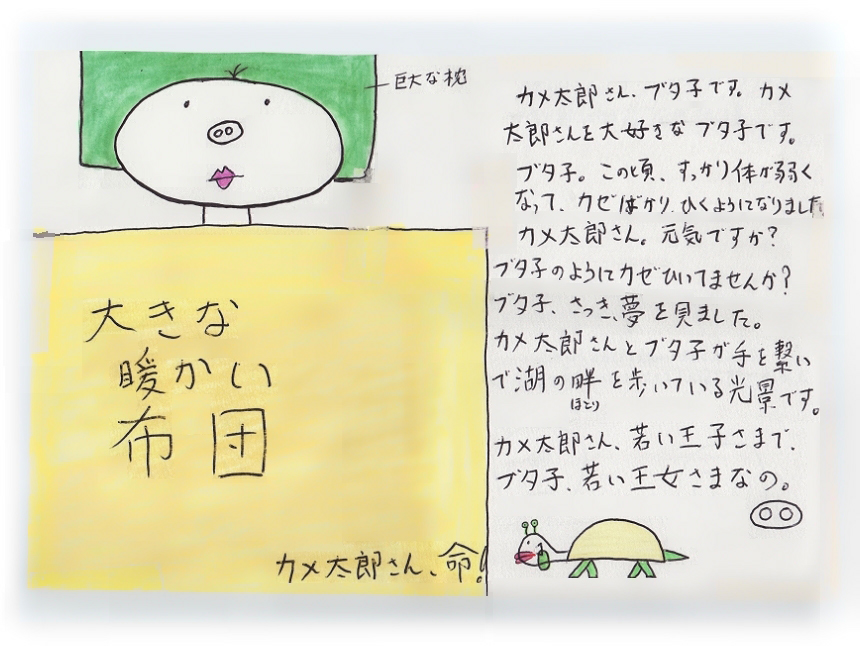 巨大な枕
大きな
暖かい
布団
カメ太郎さん、命!
カメ太郎さん、ブタ子です。カメ
太郎さんを大好きなブタ子です。
ブタ子。この頃、すっかり体が弱く
なって、カゼばかりひくようになりました
カメ太郎さん。元気ですか?
ブタ子のようにカゼひいてませんか?
ブタ子、さっき、夢を見ました。
カメ太郎さんとブタ子が手を繋い
で湖の畔を歩いている光景です。
ほとり
カメ太郎さん、若い王子さまで、
ブタ子、若い王女さまなの。